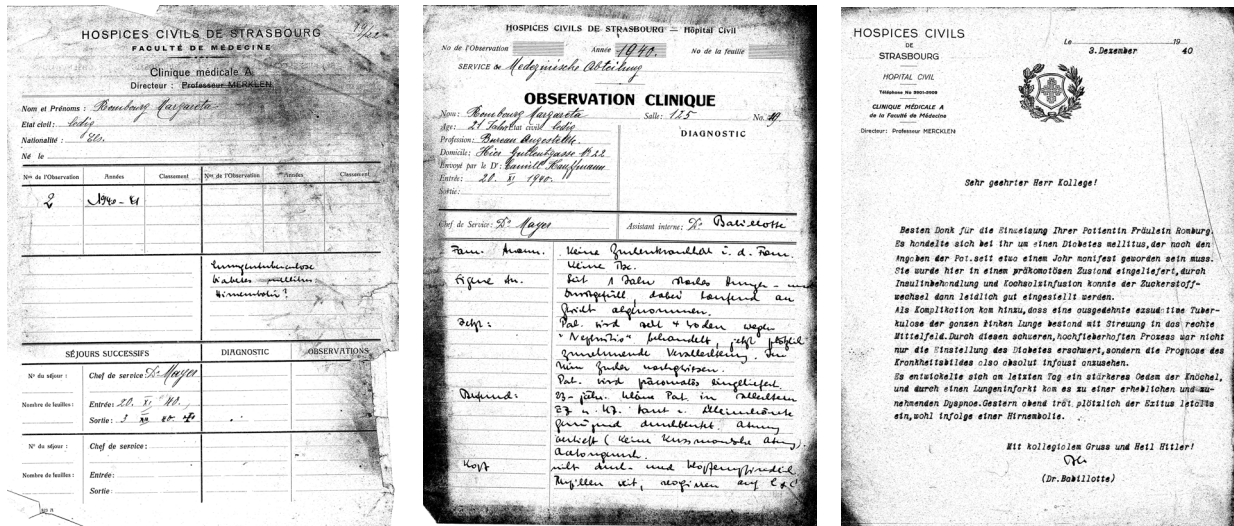 HOSPICES CIVILS DE STRASBOURG
FACULTÉ DE MÉDECINE
Clinique médicale A
Directeur : Professeur MERKLEN
Nom et Prénoms : Rombourg Margareta
Etat civil : ledig
Nationalité : Els.
Né le
Nos de l'Observation Années Classement Nos de l'Observation Années Classement
2 1940-41
Lungentuberculose
Diabetes mellitus
Hirnembolie?
SÉJOURS SUCCESSIFS DIAGNOSTIC OBSERVATIONS
N° du séjour : Chef de service Dr Mayer
Nombre de feuilles : Entrée: 20. XI 40.
Sortie : 3 XII 40
N° du séjour : Chef de service :
Nombre de feuilles : Entrée :
Sortie :
HOSPICES CIVILS DE STRASBOURG — Hôpital Civil
No de l'Observation Année 1940. No de la feuille
SERVICE de Medizinische Abteilung
OBSERVATION CLINIQUE
Nom: Rombourg Margareta Salle: 125 No. 49
Age: 21 Jahre Etat civil ledig
DIAGNOSTIC
Profession: Bureau Angestellte
Domicile: Hier Gutleutgasse No 22
Envoyé par le Dr: Camill Kauffmann
Entrée: 20. XI 1940.
Sortie:
Chef de Service: Dr Mayer Assistant interne: Dr Babillotte
Fam. Anam. Keine Zuckerkrankheit i. d. Fam.
Keine Tbc.
Eigene An. Seit 1 Jahr starkes Hunger- und
Durstgefühl, dabei laufend an
Gewicht abgenommen.
Jetzt: Pat. wird seit 4 Woden wegen
"Nephritis" behandelt, jetzt plötzlich
zunehmende Verschlechterung. Im
Urin Zucker nachgewiesen.
Pat. wird präcomatös eingeliefert.
Befund: 23-jähr. kleine Pat. in schlechtem
EZ u. KZ. Haut u. Schleimhäute
genügend durchblutet. Atmung
vertieft (keine Kussmaulsche Atmg)
Acetongeruch.
Kopf nicht druck- und klopfempfindlich
Pupillen weit, reagieren auf L & C
HOSPICES CIVILS
DE
STRASBOURG
HOPITAL CIVIL
Téléphone No
CLINIQUE MÉDICALE A
de la Faculté de Médecine
Directeur: Professeur MERCKLEN
Le 3.Dezember 19 40
Sehr geehrter Herr Kollege!
Besten Dank für die Einweisung Ihrer Patientin Fräulein Romburg.
Es handelte sich bei ihr um einen Diabetes mellitus,der nach den
Angaben der Pat.seit etwa einem Jahr manifest geworden sein muss.
Sie wurde hier in einem präkomatösen Zustand eingeliefert,durch
Insulinbehandlung und Kochsalzinfusion konnte der Zuckerstoff-
wechsel dann leidlich gut eingestellt werden.
Als Komplikation kam hinzu,dass eine ausgedehnte exsudative Tuber-
kulose der ganzen linken Lunge bestand mit Streuung in das rechte
Mittelfeld.Durch diesen schweren,hochfieberhaften Prozess war nicht
nur die Einstellung des Diabetes erschwert,sondern die Prognose des
Krankheitsbildes also absolut infaust anzusehen.
Es entwickelte sich am letzten Tag ein stärkeres Oedem der Knöchel,
und durch einen Lungeninfarkt kam es zu einer erheblichen und zu-
nehmenden Dyspnoe.Gestern abend trat plötzlich der Exitus letalis
ein,wohl infolge einer Hirnembolie.
Mit kollegialem Gruss und Heil Hitler!
(Dr.Babillotte)